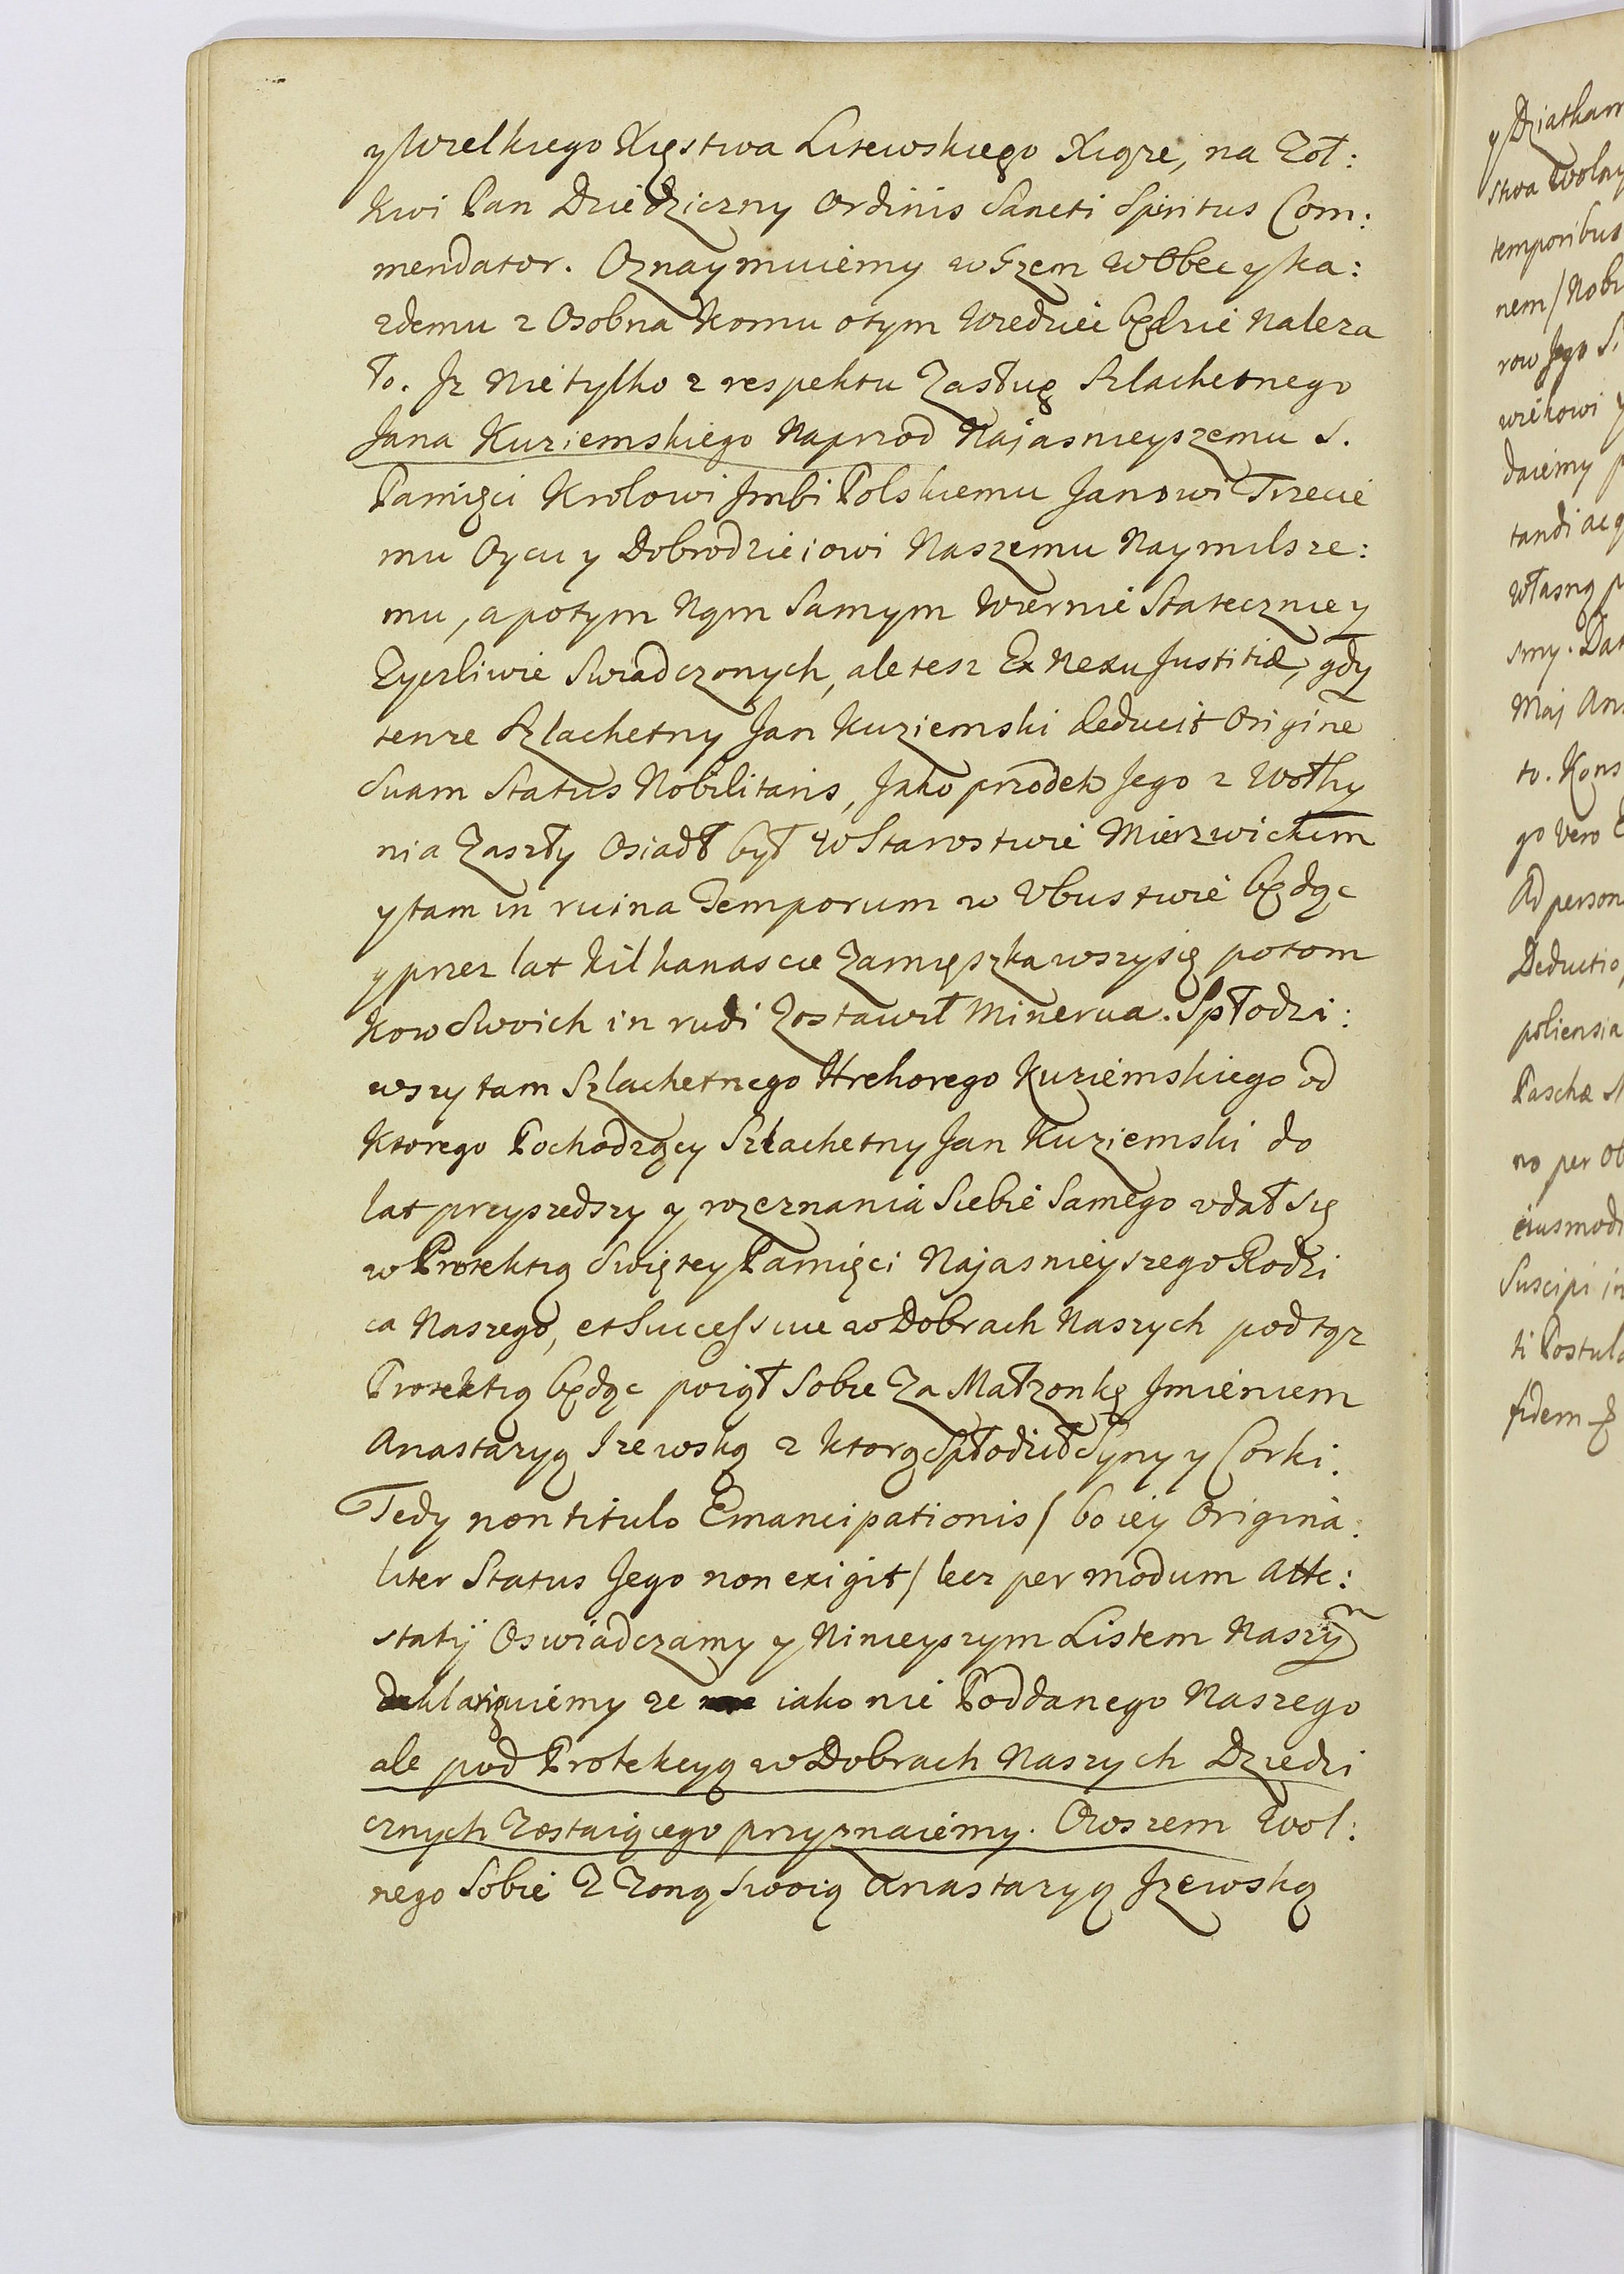 y Wielkiego Xięstwa Litewskiego Xiąże, na Zoł:
kwi Pan Dziedziczny Ordinis Sancti Spiritus Com:
mendator. Oznaymuiemy wszem wobbec y ka:
zdemu z Osobna Komu otym Wiedziec będzie Naleza
ło. Jz Nietylko z respektu Zasług Szlachetnego
Jana Kuziemskiego Naprzod Najasnieyszemu S.
Pamięci Krolowi Jmbi Polskiemu Janowi Trzecie
mu Oycu y Dobrodzieiowi Naszemu Naymilsze:
mu, a potym Nąm Samym Wiernie Statecznie y
Zyczliwie Swiadczonych, ale tesz Ex Nexu Justitiæ, gdy
tenze Szlachetny Jan Kuziemski deducit Origine
Suam Status Nobilitaris, Jako przodek Jego z Wołhy
nia Zaszły Osiadł był w Starostwie Mierzwickim
y tam in ruina Temporum w Vbustwie będąc
y przez lat kilkanascie Zamięszkawszysię potom
kow Swoich in rudi Zostawił Minerua. Spłodzi:
wszy tam Szlachetnego Hrehorego Kuziemskiego od
Ktorego Pochodzący Szlachetny Jan Kuziemski do
lat przyszedszy y rozeznania Siebie Samego vdał się
w Protektią Swiętey Pamięci Najasnieyszego Rodzi
ca Naszego, et Successiue w Dobrach Naszych pod tąz
Protektią będąc poiął Sobie Za Małzonkę Jmieniem
Anastazyą Izewską z ktorą Spłodził Syny y Corki.
Tedy non titulo Emancipationis / bo iey Origina:
liter Status Jego non exigit / lecz per modum Atte:
statij Oswiadczamy y Ninieyszym Listem Naszym
deklaruiemy ze iako nie Poddanego Naszego
ale pod Protekcyą w Dobrach Naszych Dziedzi
cznych Zostaiącego przyznaiemy. Owszem Wol:
nego Sobie Z Zoną Swoią Anastazyą Jzewską
y Dziatkam
stwa Wolny
temporibus
nem / Nobi
row Jego S.
wiekowi y
daiemy p
tandi ac q
własną p
smy. Dat
Maj An
to. Kons
go vero
Ad person
Deductio,
poliensia
Paschæ
no per Ob
eiusmodi
Suscipi in
ti Postula
fidem